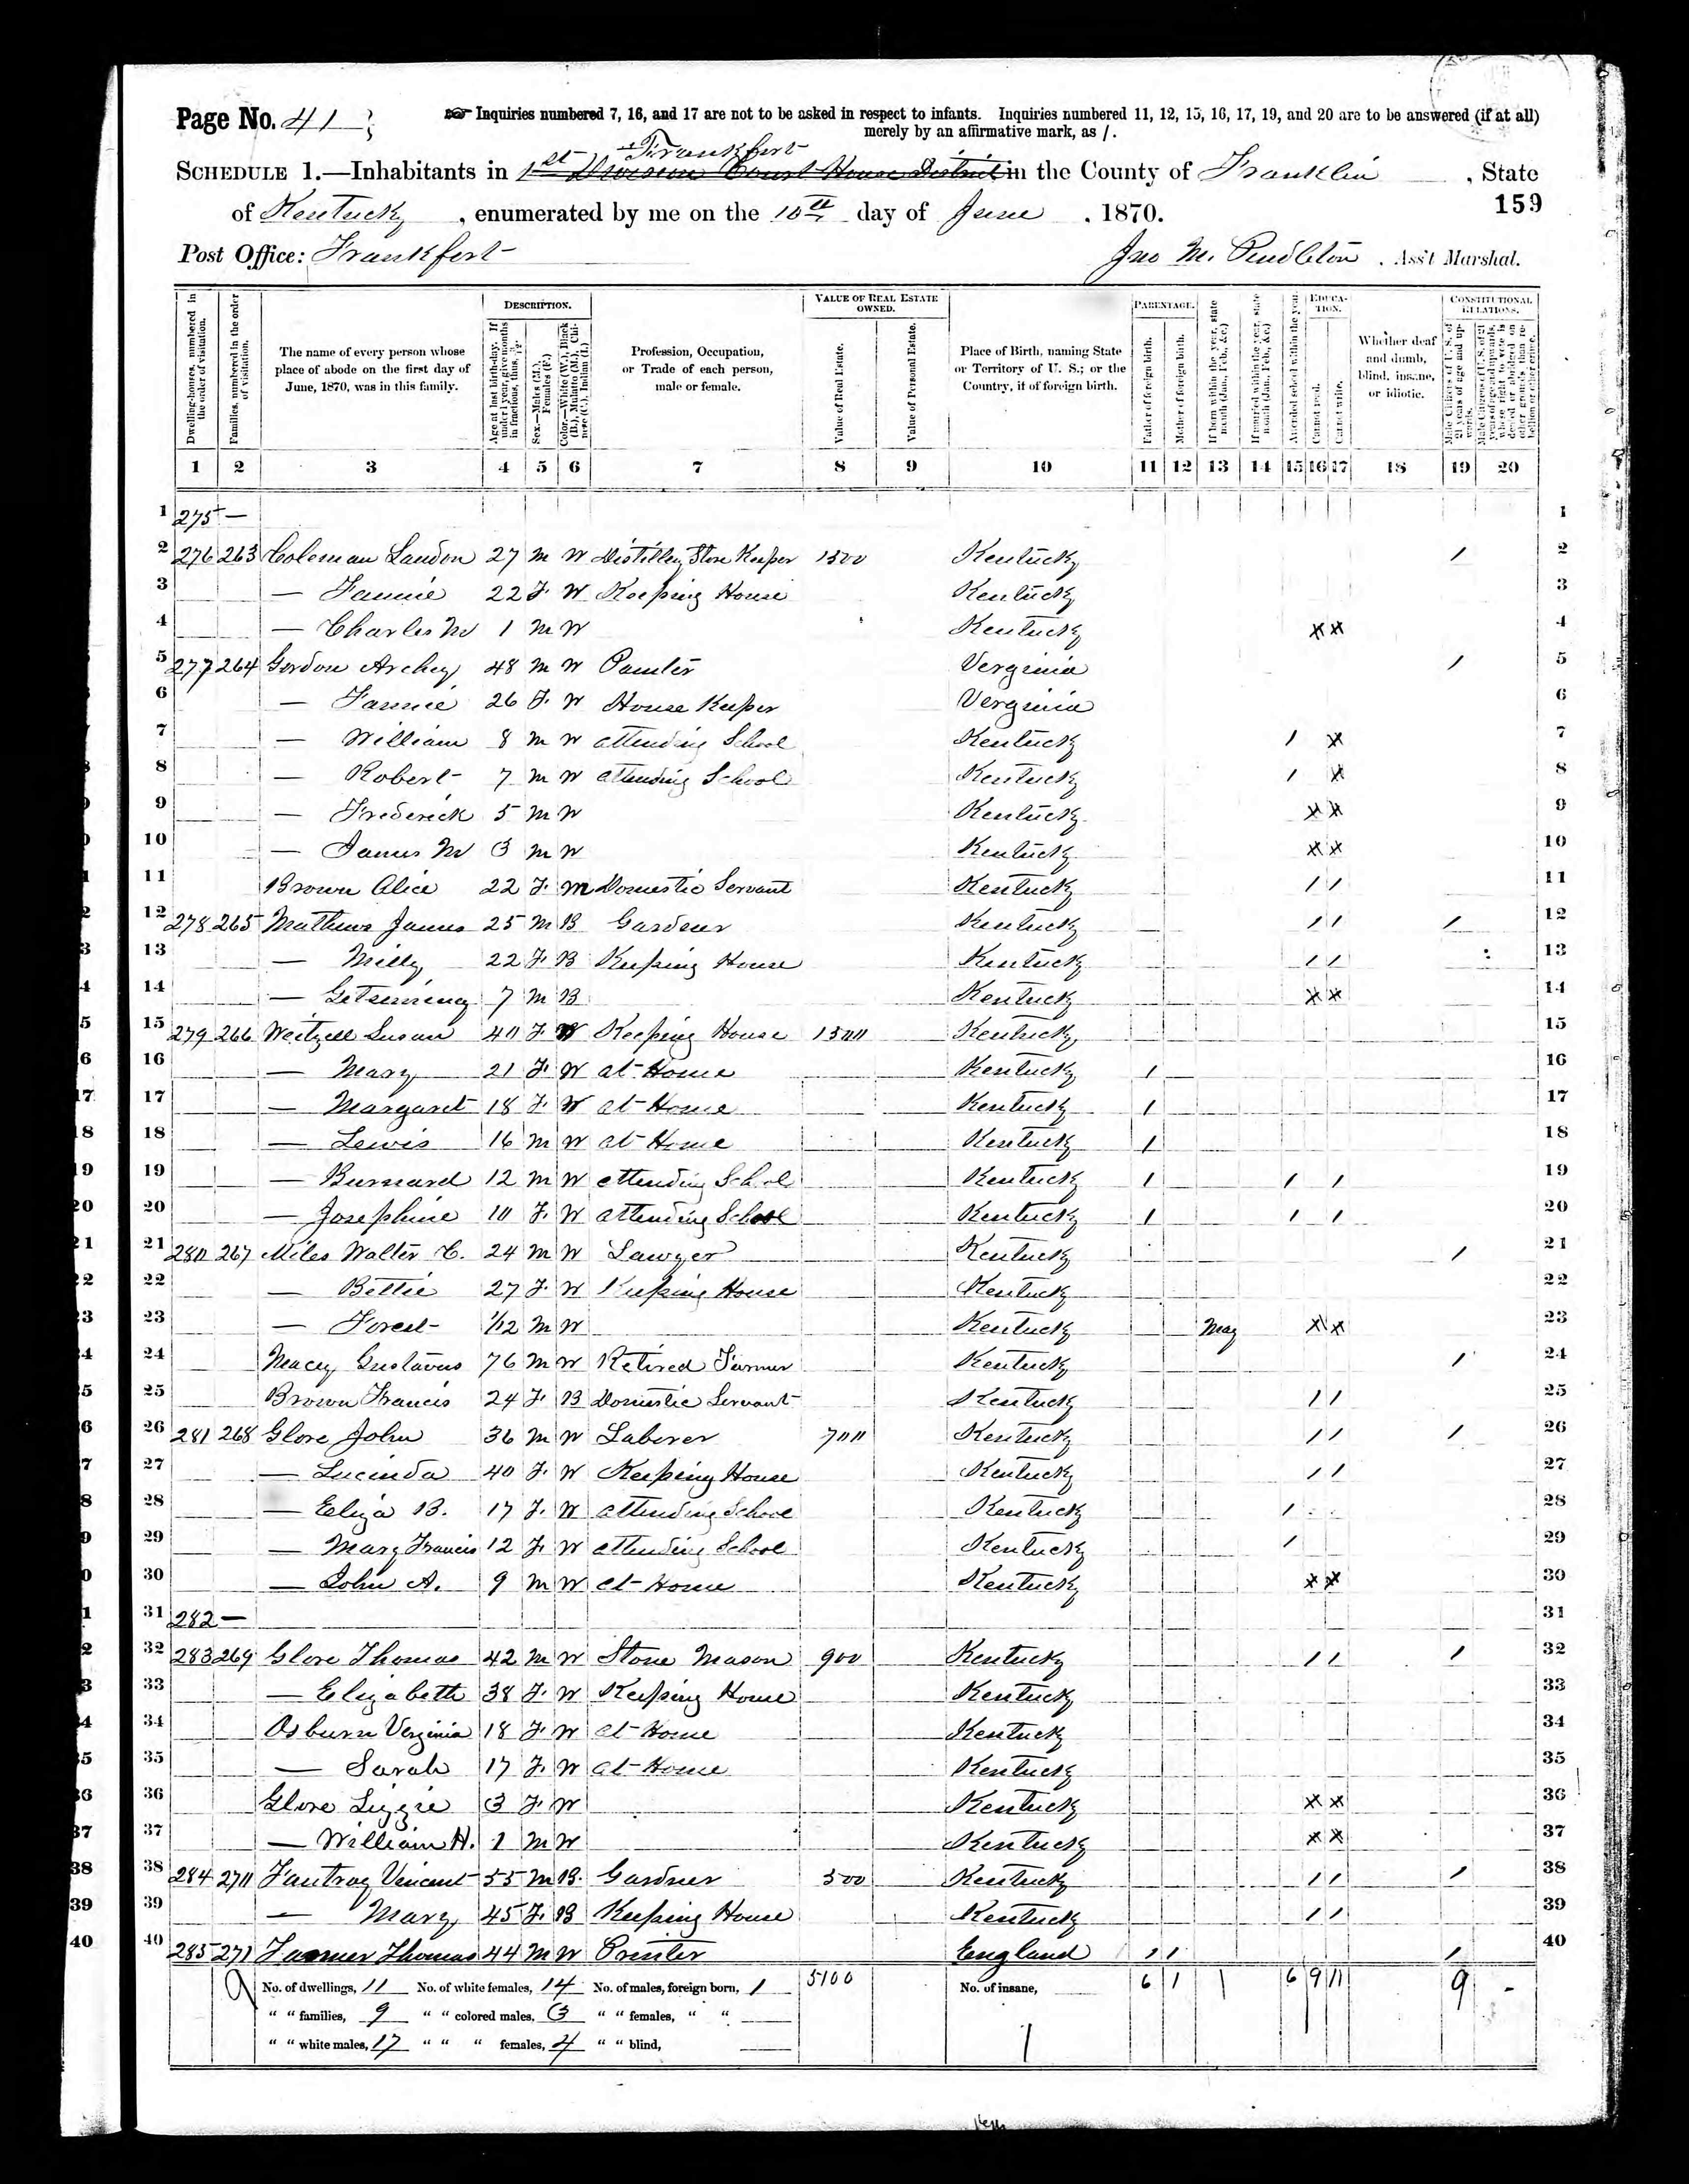 Page No. 41
Inquiries numbered 7, 16, and 17 are not to be asked in respect to infants. Inquiries numbered 11, 12, 15, 16, 17, 19, and 20 are to be answered (if at all)
merely by an affirmative mark, as /.
Frankfort
SCHEDULE 1.—Inhabitants in 1st Division Court House District in the County of Franklin, State
of Kentucky, enumerated by me on the 10th day of June, 1870.
159
Post Office: Frankfort Jno M. Pendleton, Ass't Marshal.
Dwelling-houses, numbered in the order of visitation.
Families, numbered in the order of visitation.
The name of every person whose place of abode on the first day of June, 1870, was in this family.
DESCRIPTION.
Age at last birth-day. If under 1 year, give months in fractions, thus, 3/12.
Sex.—Males (M.), Females (F.)
Color.—White (W.), Black (B.), Mulatto (M.), Chinese (C.), Indian (I.)
Profession, Occupation, or Trade of each person, male or female.
VALUE OF REAL ESTATE OWNED.
Value of Real Estate.
Value of Personal Estate.
Place of Birth, naming State or Territory of U. S.; or the Country, if of foreign birth.
PARENTAGE.
Father of foreign birth.
Mother of foreign birth.
If born within the year, state month (Jan., Feb., &c.)
If married within the year, state month (Jan., Feb., &c.)
Attended school within the year.
EDUCATION.
Cannot read.
Cannot write.
Whether deaf and dumb, blind, insane, or idiotic.
CONSTITUTIONAL RELATIONS.
Male Citizens of U. S. of 21 years of age and upwards.
Male Citizens of U. S. of 21 years of age and upwards, where right to vote is denied or abridged on other grounds than rebellion or other crime.
1 2 3 4 5 6 7 8 9 10 11 12 13 14 15 16 17 18 19 20
1 275 — 1
2 276 263 Coleman Landon 27 M W Distilley Store Keeper 1500 Kentucky / 2
3 — Fannie 22 F W Keeping House Kentucky 3
4 — Charles M 1 M W Kentucky X X 4
5 277 264 Gordon Archey 48 M W Painter Verginia / 5
6 — Fannie 26 F W House Keeper Verginia 6
7 — William 8 M W attending School Kentucky / X 7
8 — Robert 7 M W attending School Kentucky / X 8
9 — Frederick 5 M W Kentucky X X 9
10 — James M 3 M W Kentucky X X 10
11 Brown Alice 22 F M Domestic Servant Kentucky / / 11
12 278 265 Mathews James 25 M B Gardner Kentucky / / / 12
13 — Milly 22 F B Keeping House Kentucky / / 13
14 — 7 M B Kentucky X X 14
15 279 266 Weitzell Susan 40 F W Keeping House 1500 Kentucky 15
16 — Mary 21 F W at Home Kentucky / 16
17 — Margaret 18 F W at Home Kentucky / 17
18 — Lewis 16 M W at Home Kentucky / 18
19 — Burnard 12 M W attending School Kentucky / / / 19
20 — Josephine 10 F W attending School Kentucky / / / 20
21 280 267 Miles Walter C. 24 M W Lawyer Kentucky / 21
22 — Bettie 27 F W Keeping House Kentucky 22
23 — Forest 1/12 M W Kentucky May X X 23
24 Macey Gustavus 76 M W Retired Farmer Kentucky / 24
25 Brown Francis 24 F B Domestic Servant Kentucky / / 25
26 281 268 Glore John 36 M W Laborer 700 Kentucky / / / 26
27 — Lucinda 40 F W Keeping House Kentucky / / 27
28 — Eliza B. 17 F W attending School Kentucky / 28
29 — Mary Francis 12 F W attending School Kentucky / 29
30 — John A. 9 M W at Home Kentucky X X 30
31 282 — 31
32 283 269 Glore Thomas 42 M W Stone Mason 900 Kentucky / / / 32
33 — Elizabeth 38 F W Keeping House Kentucky 33
34 Osburn Verginia 18 F W at Home Kentucky 34
35 — Sarah 17 F W at Home Kentucky 35
36 Glore Lizzie 3 F W Kentucky X X 36
37 — William H. 1 M W Kentucky X X 37
38 284 270 Fantroy Vincent 55 M B. Gardner 500 Kentucky / / / 38
39 — Mary 45 F B Keeping House Kentucky / / 39
40 285 271 Farmer Thomas 44 M W Printer England / / / 40
9 No. of dwellings, 11 No. of white females, 14 No. of males, foreign born, 1 5100 No. of insane, 6 1 1 6 9 11 9 -
" " families, 9 " " colored males, 3 " " females, " "
" " white males, 17 " " " females, 4 " " blind, 1